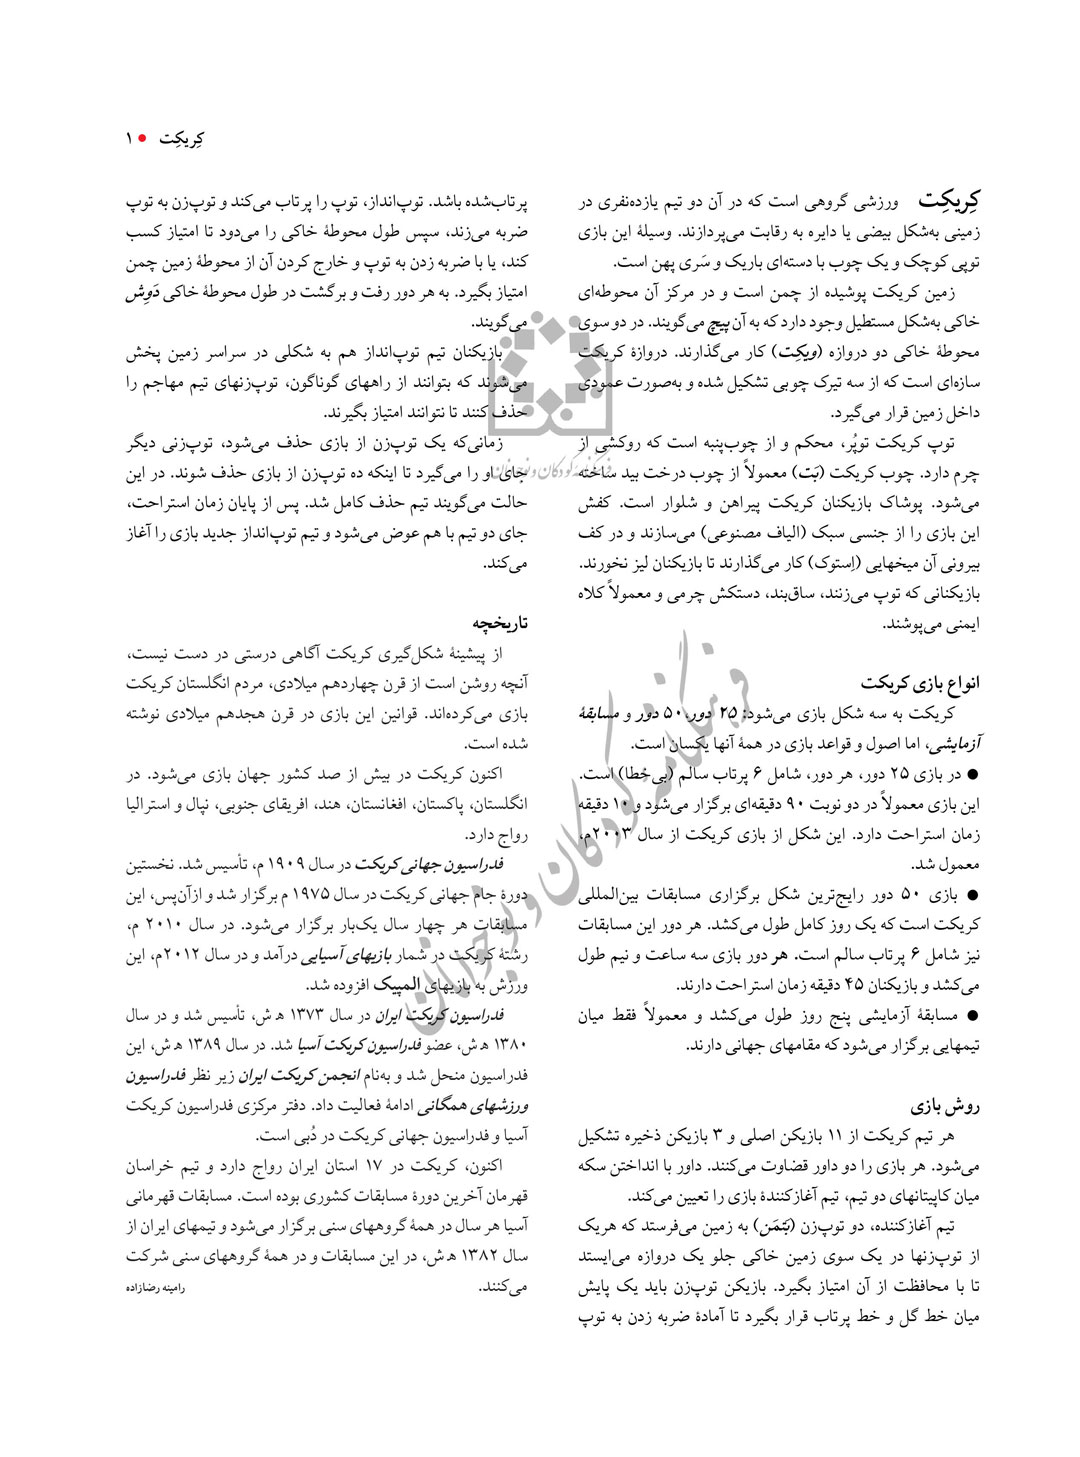 کِریکِت ● ۱
کِریکِت ورزشی گروهی است که در آن دو تیم یازده‌نفری در
زمینی به‌شکل بیضی یا دایره به رقابت می‌پردازند. وسیلهٔ این بازی
توپی کوچک و یک چوب با دسته‌ای باریک و سَری پهن است.
زمین کریکت پوشیده از چمن است و در مرکز آن محوطه‌ای
خاکی به‌شکل مستطیل وجود دارد که به آن پیچ می‌گویند. در دو سوی
محوطهٔ خاکی دو دروازه (ویکِت) کار می‌گذارند. دروازهٔ کریکت
سازه‌ای است که از سه تیرک چوبی تشکیل شده و به‌صورت عمودی
داخل زمین قرار می‌گیرد.
توپ کریکت توپُر، محکم و از چوب‌پنبه است که روکشی از
چرم دارد. چوب کریکت (بَت) معمولاً از چوب درخت بید ساخته
می‌شود. پوشاک بازیکنان کریکت پیراهن و شلوار است. کفش
این بازی را از جنسی سبک (الیاف مصنوعی) می‌سازند و در کف
بیرونی آن میخهایی (اِستوک) کار می‌گذارند تا بازیکنان لیز نخورند.
بازیکنانی که توپ می‌زنند، ساق‌بند، دستکش چرمی و معمولاً کلاه
ایمنی می‌پوشند.
انواع بازی کریکت
کریکت به سه شکل بازی می‌شود: ۲۵ دور، ۵۰ دور و مسابقهٔ
آزمایشی، اما اصول و قواعد بازی در همهٔ آنها یکسان است.
● در بازی ۲۵ دور، هر دور، شامل ۶ پرتاب سالم (بی‌خطا) است.
این بازی معمولاً در دو نوبت ۹۰ دقیقه‌ای برگزار می‌شود و ۱۰ دقیقه
زمان استراحت دارد. این شکل از بازی کریکت از سال ۲۰۰۳م،
معمول شد.
● بازی ۵۰ دور رایج‌ترین شکل برگزاری مسابقات بین‌المللی
کریکت است که یک روز کامل طول می‌کشد. هر دور این مسابقات
نیز شامل ۶ پرتاب سالم است. هر دور بازی سه ساعت و نیم طول
می‌کشد و بازیکنان ۴۵ دقیقه زمان استراحت دارند.
● مسابقهٔ آزمایشی پنج روز طول می‌کشد و معمولاً فقط میان
تیمهایی برگزار می‌شود که مقامهای جهانی دارند.
روش بازی
هر تیم کریکت از ۱۱ بازیکن اصلی و ۳ بازیکن ذخیره تشکیل
می‌شود. هر بازی را دو داور قضاوت می‌کنند. داور با انداختن سکه
میان کاپیتانهای دو تیم، تیم آغازکنندهٔ بازی را تعیین می‌کند.
تیم آغازکننده، دو توپ‌زن (بَتمَن) به زمین می‌فرستد که هریک
از توپ‌زنها در یک سوی زمین خاکی جلو یک دروازه می‌ایستد
تا با محافظت از آن امتیاز بگیرد. بازیکن توپ‌زن باید یک پایش
میان خط گل و خط پرتاب قرار بگیرد تا آمادهٔ ضربه زدن به توپ
پرتاب‌شده باشد. توپ‌انداز، توپ را پرتاب می‌کند و توپ‌زن به توپ
ضربه می‌زند، سپس طول محوطهٔ خاکی را می‌دود تا امتیاز کسب
کند، یا با ضربه زدن به توپ و خارج کردن آن از محوطهٔ زمین چمن
امتیاز بگیرد. به هر دور رفت و برگشت در طول محوطهٔ خاکی دَوِش
می‌گویند.
بازیکنان تیم توپ‌انداز هم به شکلی در سراسر زمین پخش
می‌شوند که بتوانند از راههای گوناگون، توپ‌زنهای تیم مهاجم را
حذف کنند تا نتوانند امتیاز بگیرند.
زمانی‌که یک توپ‌زن از بازی حذف می‌شود، توپ‌زنی دیگر
جای او را می‌گیرد تا اینکه ده توپ‌زن از بازی حذف شوند. در این
حالت می‌گویند تیم حذف کامل شد. پس از پایان زمان استراحت،
جای دو تیم با هم عوض می‌شود و تیم توپ‌انداز جدید بازی را آغاز
می‌کند.
تاریخچه
از پیشینهٔ شکل‌گیری کریکت آگاهی درستی در دست نیست،
آنچه روشن است از قرن چهاردهم میلادی، مردم انگلستان کریکت
بازی می‌کرده‌اند. قوانین این بازی در قرن هجدهم میلادی نوشته
شده است.
اکنون کریکت در بیش از صد کشور جهان بازی می‌شود. در
انگلستان، پاکستان، افغانستان، هند، افریقای جنوبی، نپال و استرالیا
رواج دارد.
فدراسیون جهانی کریکت در سال ۱۹۰۹ م، تأسیس شد. نخستین
دورهٔ جام جهانی کریکت در سال ۱۹۷۵ م برگزار شد و ازآن‌پس، این
مسابقات هر چهار سال یک‌بار برگزار می‌شود. در سال ۲۰۱۰ م،
رشتهٔ کریکت در شمار بازیهای آسیایی درآمد و در سال ۲۰۱۲م، این
ورزش به بازیهای المپیک افزوده شد.
فدراسیون کریکت ایران در سال ۱۳۷۳ ه‍ ش، تأسیس شد و در سال
۱۳۸۰ ه‍ ش، عضو فدراسیون کریکت آسیا شد. در سال ۱۳۸۹ ه‍ ش، این
فدراسیون منحل شد و به‌نام انجمن کریکت ایران زیر نظر فدراسیون
ورزشهای همگانی ادامهٔ فعالیت داد. دفتر مرکزی فدراسیون کریکت
آسیا و فدراسیون جهانی کریکت در دُبی است.
اکنون، کریکت در ۱۷ استان ایران رواج دارد و تیم خراسان
قهرمان آخرین دورهٔ مسابقات کشوری بوده است. مسابقات قهرمانی
آسیا هر سال در همهٔ گروههای سنی برگزار می‌شود و تیمهای ایران از
سال ۱۳۸۲ ه‍ ش، در این مسابقات و در همهٔ گروههای سنی شرکت
می‌کنند. رامینه رضازاده
فرهنگنامه کودکان و نوجوانان
فرهنگنامه کودکان و نوجوانان